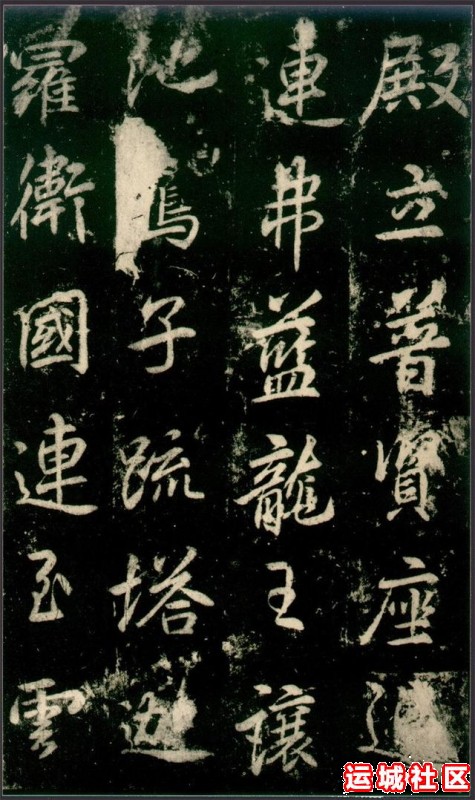 殿立普賢座
連弗藍龍王讓
池子疏塔迦
羅衛國連至雲
运城社区